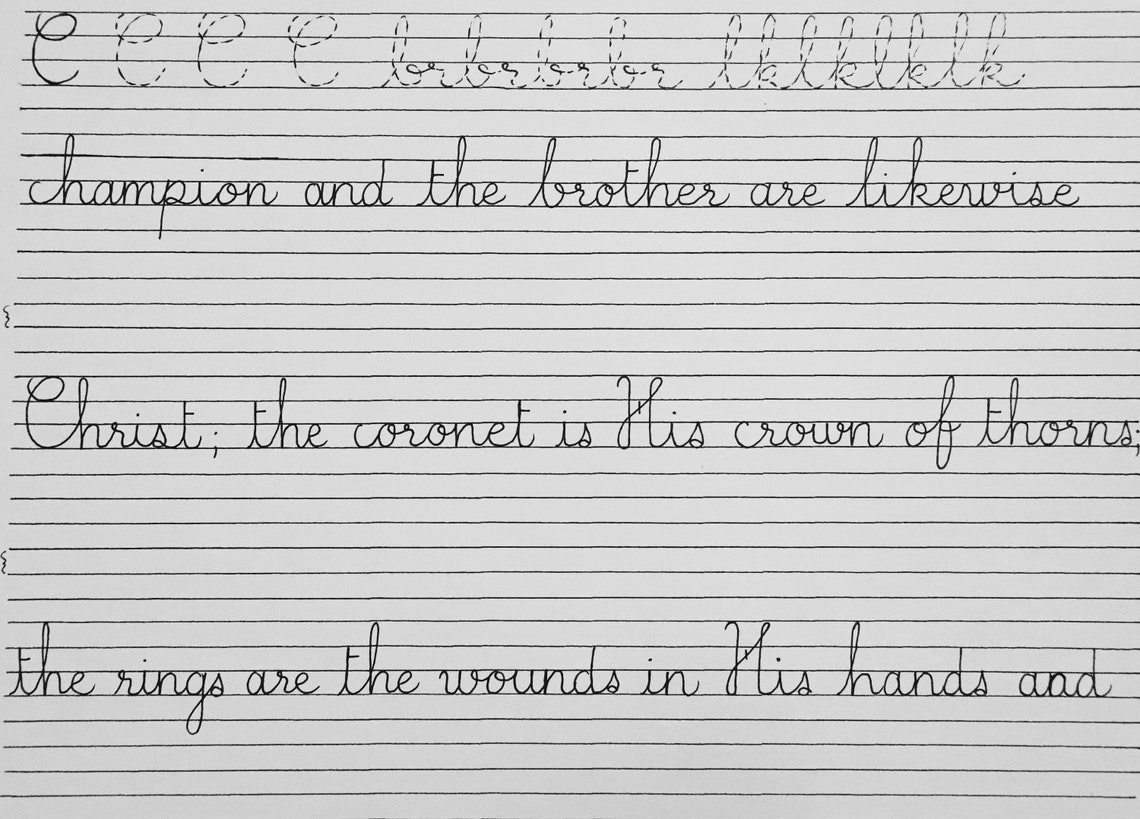 C C C C brbrbrbr lklklklk
champion and the brother are likewise
Christ; the coronet is His crown of thorns;
the rings are the wounds in His hands and